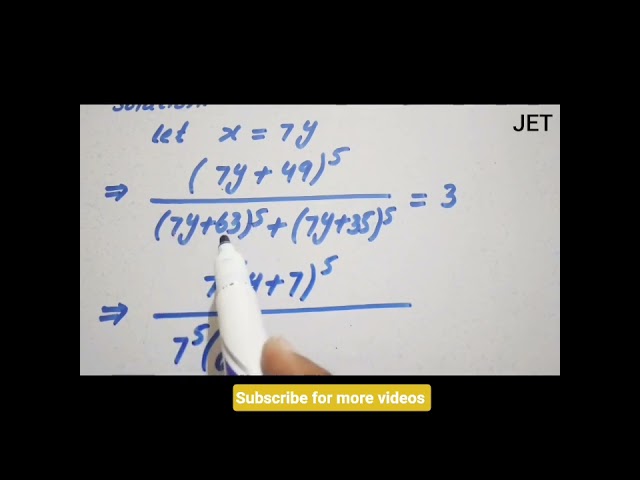 JET
let x = 7y
⇒ (7y + 49)^5 / (7y+63)^5 + (7y+35)^5 = 3
+ 7)^5
⇒ 7^5(
Subscribe for more videos